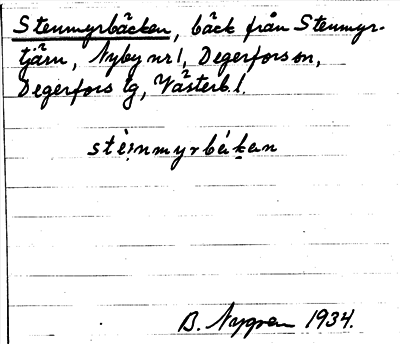 Stenmyrbäcken, bäck från Stenmyr-
tjärn, Nyby nr 1, Degerfors sn,
Degerfors tg, Västerb. l.
stè́inmyrbák̬en
B. Nygren 1934.